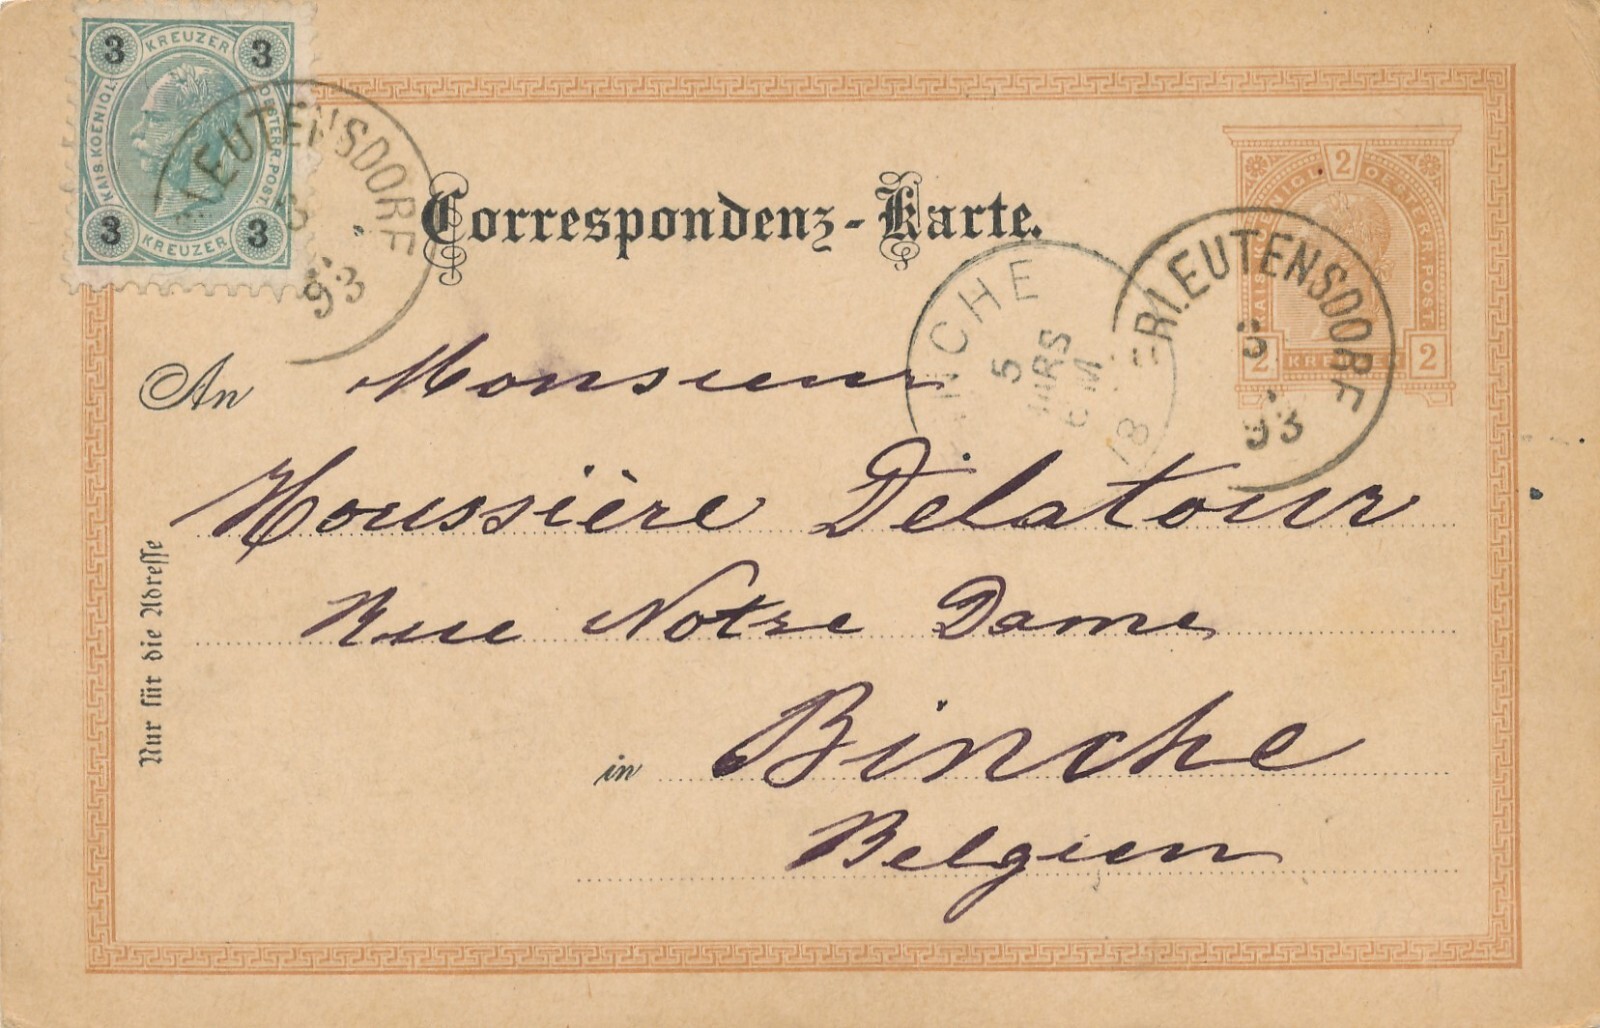 3 KREUZER 3
KAIS. KOENIGL.
OESTERR. POST
3 KREUZER 3
LEUTENSDORF
3
93
Correspondenz-Karte.
2
KAIS. KOENIGL. OESTERR. POST.
2 KREUZER 2
LEUTENSDORF
93
NCHE
5
MRS
An Monsieur
Houssière Delatour
Rue Notre Dame
in Binche
Belgien
Nur für die Adresse